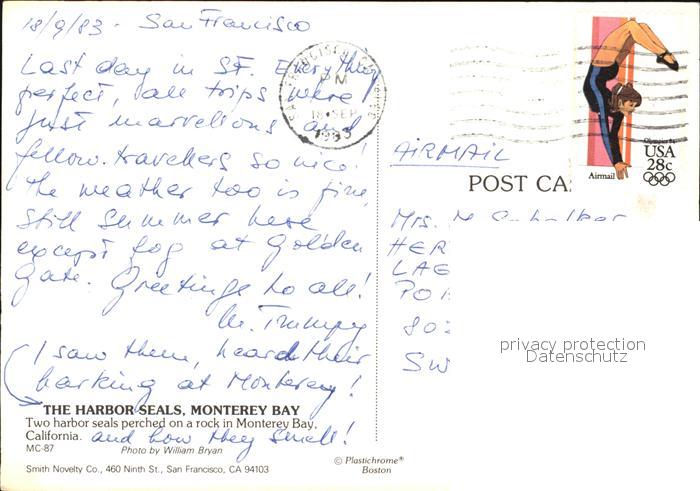 18/9/83 - San Francisco
Last day in SF. Everything
perfect, all trips were
just marvellous and
fellow-travellers so nice!
The weather too is fine,
still summer here
except fog at Golden
Gate. Greetings to all!
I saw them, heard their
barking at Monterey!
THE HARBOR SEALS, MONTEREY BAY
Two harbor seals perched on a rock in Monterey Bay,
California. and how they smell!
MC-87 Photo by William Bryan
Smith Novelty Co., 460 Ninth St., San Francisco, CA 94103
© Plastichrome®
Boston
PM
18 SEP
1983
Olympics 84
USA
28c
Airmail
AIRMAIL
POST CA
Mrs.
HER
LAG
PO
802
SW
privacy protection
Datenschutz